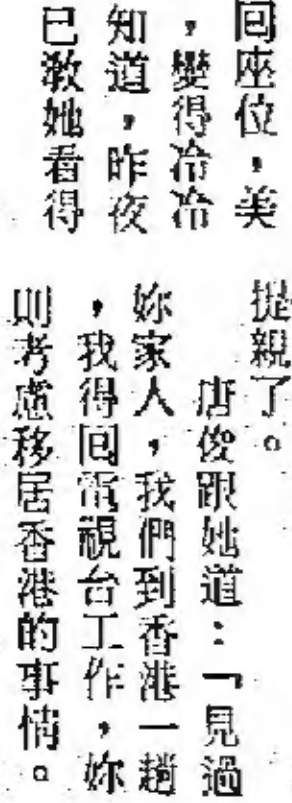 回座位，美
，變得冷冷
知道，昨夜
已教她看得
提親了。
唐俊跟她道：「見過
妳家人，我們到香港一趟
，我得回電視台工作，妳
則考慮移居香港的事情。